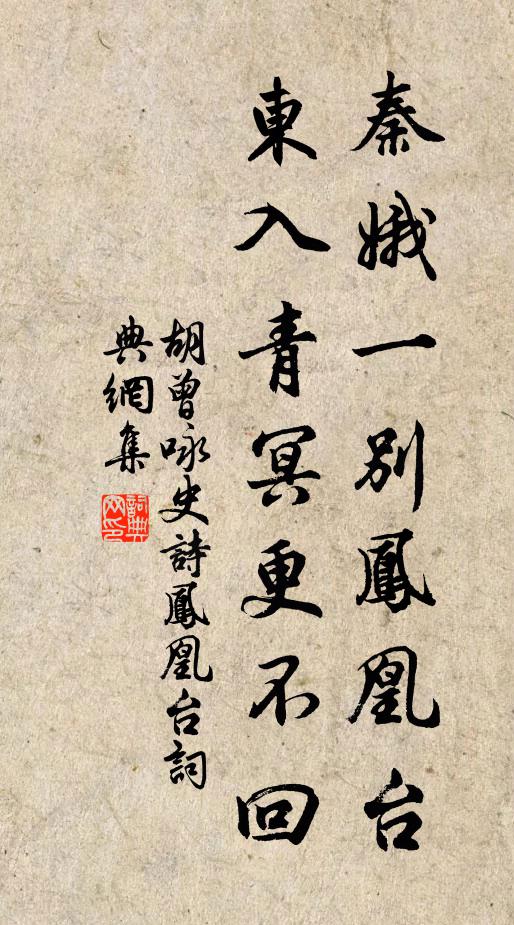 秦娥一別鳳凰台
東入青冥更不回
胡曾咏史詩鳳凰台詞
典網集
詞典
网印